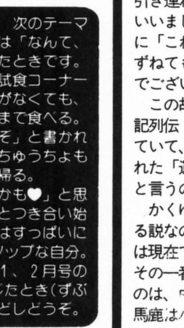 次のテーマ
は「なんて、
たときです。
試食コーナー
がなくても、
まで食べる。
ぞ」と書かれ
ちゅうちょも
帰る。
かも♥」と思
とつき合い始
はすっぱいに
ップな自分。
1、2月号の
たとき(ずぶ
どしどうぞ。
いいまし
に「これ
ずねても
でござい
この故
記列伝
ていて、
れた「道
と言うの
かくし
る説なの
は現在て
その一を
のは、中
馬鹿は